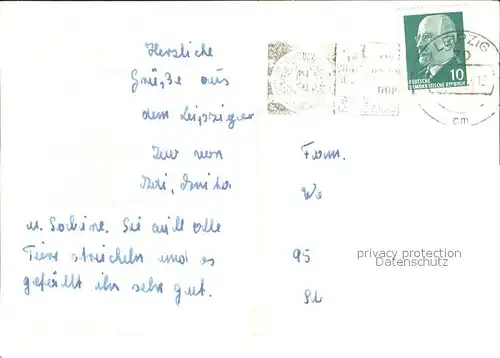 Herzliche
Grüße aus
dem Leipziger
Zoo von
u. Sabine. Sie will alle
Tiere streicheln und es
gefällt ihr sehr gut.
LEIPZIG
DDR
10
DEUTSCHE
DEMOKRATISCHE REPUBLIK
cm
Fam.
We
95
privacy protection
Datenschutz